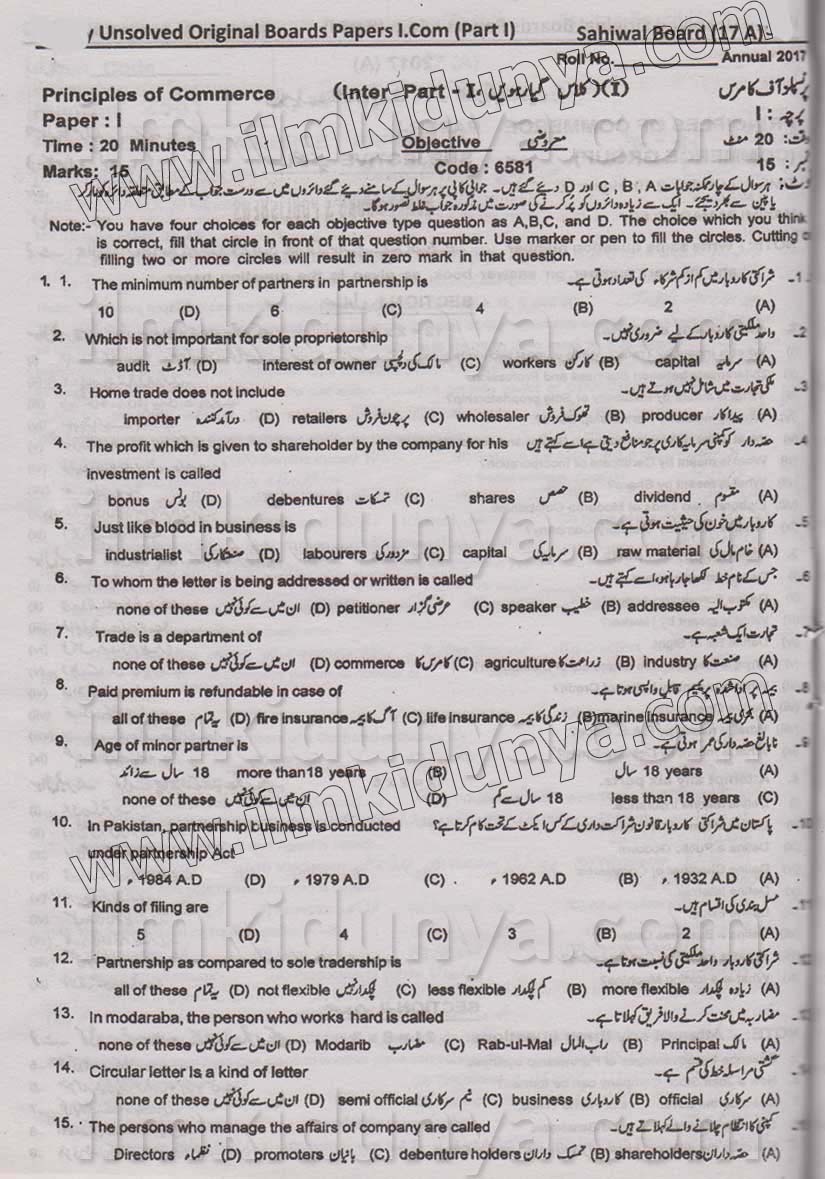 Unsolved Original Boards Papers I.Com (Part I) Sahiwal Board (17 A)
Roll No.____________ Annual 2017
Principles of Commerce (Inter Part - I، کلاس گیارہویں) (I) پرنسپلز آف کامرس
Paper : I پرچہ : I
Time : 20 Minutes Objective معروضی وقت : 20 منٹ
Marks: 15 Code : 6581 نمبر : 15
نوٹ: ہر سوال کے چار ممکنہ جوابات A ، B ، C اور D دیئے گئے ہیں۔ جوابی کاپی پر ہر سوال کے سامنے دیئے گئے دائروں میں سے درست جواب کے مطابق متعلقہ دائرہ کو مارکر
یا پین سے بھر دیجئے۔ ایک سے زیادہ دائروں کو پُر کرنے کی صورت میں مذکورہ جواب غلط تصور ہو گا۔
Note:- You have four choices for each objective type question as A,B,C, and D. The choice which you think
is correct, fill that circle in front of that question number. Use marker or pen to fill the circles. Cutting or
filling two or more circles will result in zero mark in that question.
1. 1. The minimum number of partners in partnership is شراکتی کاروبار میں کم از کم شرکاء کی تعداد ہوتی ہے۔ 1-
10 (D) 6 (C) 4 (B) 2 (A)
2. Which is not important for sole proprietorship واحد ملکیتی کاروبار کے لیے ضروری نہیں۔ 2-
audit آڈٹ (D) interest of owner مالک کی دلچسپی (C) workers کارکن (B) capital سرمایہ (A)
3. Home trade does not include ملکی تجارت میں شامل نہیں ہوتے ہیں۔ 3-
importer درآمد کنندہ (D) retailers پرچون فروش (C) wholesaler تھوک فروش (B) producer پیداکار (A)
4. The profit which is given to shareholder by the company for his حصہ دار کو کمپنی سرمایہ کاری پر جو منافع دیتی ہے اسے کہتے ہیں 4-
investment is called
bonus بونس (D) debentures تمسکات (C) shares حصص (B) dividend مقسوم (A)
5. Just like blood in business is کاروبار میں خون کی حیثیت ہوتی ہے۔ 5-
industrialist صنعتکار کی (D) labourers مزدور کی (C) capital سرمایہ کی (B) raw material خام مال کی (A)
6. To whom the letter is being addressed or written is called جس کے نام خط لکھا جا رہا ہو اسے کہتے ہیں۔ 6-
none of these ان میں سے کوئی نہیں (D) petitioner عرضی گزار (C) speaker خطیب (B) addressee مکتوب الیہ (A)
7. Trade is a department of تجارت ایک شعبہ ہے۔ 7-
none of these ان میں سے کوئی نہیں (D) commerce کامرس کا (C) agriculture زراعت کا (B) industry صنعت کا (A)
8. Paid premium is refundable in case of بیمہ پر ادا شدہ پریمیم قابل واپسی ہوتا ہے۔ 8-
all of these یہ تمام (D) fire insurance آگ کا بیمہ (C) life insurance زندگی کا بیمہ (B) marine insurance بحری بیمہ (A)
9. Age of minor partner is نابالغ حصہ دار کی عمر ہوتی ہے۔ 9-
18 سال سے زائد more than 18 years (B) 18 سال 18 years (A)
none of these ان میں سے کوئی نہیں (D) 18 سال سے کم less than 18 years (C)
10. In Pakistan, partnership business is conducted پاکستان میں شراکتی کاروبار قانون شراکت داری کے کس ایکٹ کے تحت کام کرتا ہے؟ 10-
under partnership Act
1984 A.D ء (D) 1979 A.D ء (C) 1962 A.D ء (B) 1932 A.D ء (A)
11. Kinds of filing are مسل بندی کی اقسام ہیں۔ 11-
5 (D) 4 (C) 3 (B) 2 (A)
12. Partnership as compared to sole tradership is شراکتی کاروبار واحد ملکیتی کی نسبت ہوتا ہے۔ 12-
all of these یہ تمام (D) not flexible لچکدار نہیں (C) less flexible کم لچکدار (B) more flexible زیادہ لچکدار (A)
13. In modaraba, the person who works hard is called مضاربہ میں محنت کرنے والا فریق کہلاتا ہے۔ 13-
none of these ان میں سے کوئی نہیں (D) Modarib مضارب (C) Rab-ul-Mal راب المال (B) Principal مالک (A)
14. Circular letter is a kind of letter گشتی مراسلہ خط کی قسم ہے۔ 14-
none of these ان میں سے کوئی نہیں (D) semi official نیم سرکاری (C) business کاروباری (B) official سرکاری (A)
15. The persons who manage the affairs of company are called کمپنی کا انتظام چلانے والے کہلاتے ہیں۔ 15-
Directors نظماء (D) promoters بانیان (C) debenture holders تمسک داران (B) shareholders حصہ داران (A)
www.ilmkidunya.com
ilmkidunya.com